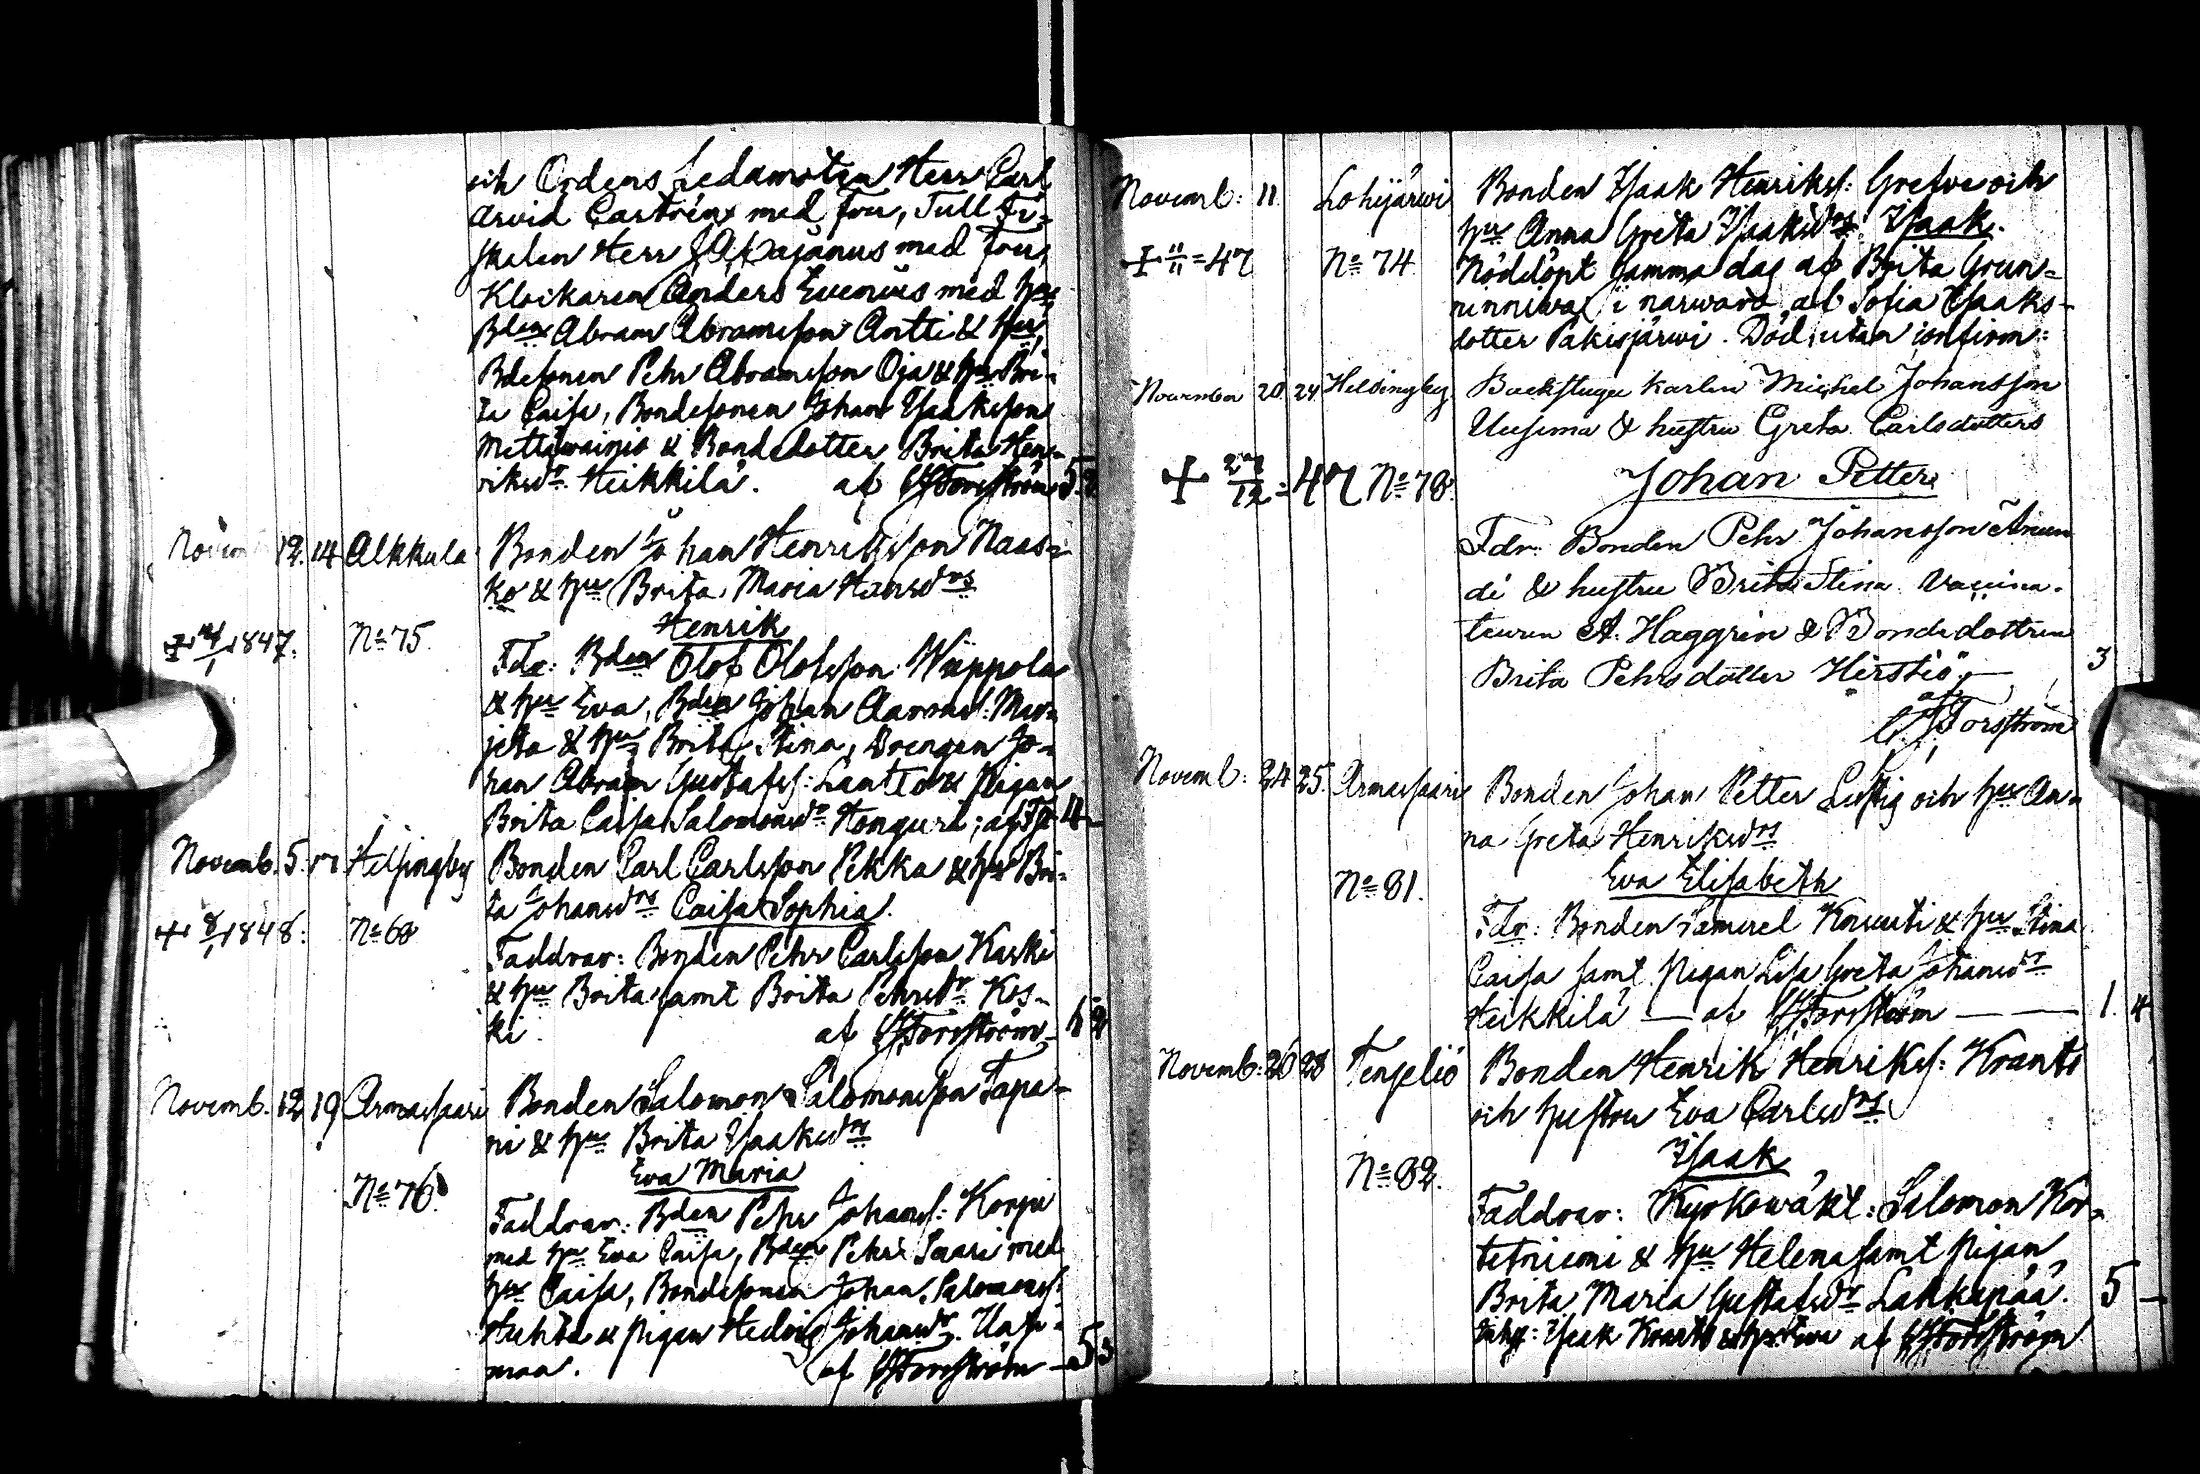 och Ordens Ledamoten Herr Carl
Arvid Castrén med Fru, Tull Fi-
skalen Herr Pajánus med Fru,
Klockaren Anders Evenius med hu
Bden Abram Abramsson Antti & hu,
Bdesonen Pehr Abramsson Oja & hu Bri-
ta Caisa, Bondesonen Johan Isaksson
Mettäwainio & Bondedotter Brita Hen-
riksdr Heikkilä. af Forsström
Novem 12. 14 Alkkula Bonden Johan Henriksson Naas-
ko & hu Brita Maria Hansdrs
Henrik
1847. No 75. Fdr: Bden Olof Olofsson Wäppola
& hu Eva, Bden Johan Aarons: Mar-
jeta & hu Brita Stina, Drengen Jo-
han Abram Gustafss: Lantto & Pigan
Brita Caisa Salomonsdr Honguri; af 4
Novemb. 5. Helsingby Bonden Carl Carlsson Pekka & hu Bri-
ta Johansdrs Caisa Sophia.
+ 8/1 1848: No 68 Faddrar: Bonden Pehr Carlsson Kaski
& hu Brita samt Brita Pehrsdr Kos-
ki. af Forsström
Novemb. 12 19 Armassaari Bonden Salomon Salomonsson Tapa-
ni & hu Brita Isaksdrs
Eva Maria
No 76. Faddrar: Bden Pehr Johanss: Korpi
med hu Eva Caisa, Bden Pehr Saari med
hu Caisa, Bondesonen Johan Salomonss:
Huhta & pigan Hedvig Johansdr
maa. af Forsström 5
Novemb: 11 Lohijärwi Bonden Isaak Henrikss: Gretve och
hu Anna Greta Isaksdrs: Isaak.
+ 11/11 = 47 No 74 Nöddöpt samma dag af Brita Grun-
ninniwa i närwaro af Sofia Isaaks-
dotter Pakisjärwi. Död utan confirm:
November 20 24 Helsingby Backstugu karlen Michel Johansson
Uusima & hustru Greta Carlsdotters
+ 27/12 = 47 No 78. Johan Petter
Fdr: Bonden Pehr Johansson Anun-
di & hustru Brita Stina Vaccina-
teuren A. Häggrén & Bondedottren
Brita Pehrsdotter Hirstiö 3
af
Forsström
Novemb: 24 25. Armassaari Bonden Johan Petter Lustig och hu An-
na Greta Henriksdrs
No 81. Eva Elisabeth
Fdr: Bonden Samuel Kruuti & hu Stina
Caisa samt Pigan Lisa Greta Johansdr
Heikkilä — af Forsström — — 1. 4
Novemb: 26 28 Tengeliö Bonden Henrik Henrikss: Krants
och hustru Eva Carlsdrs
Isaak
No 82. Faddrar: Kyrkowäkt: Salomon Kor-
tetniemi & hu Helena samt pigan
Brita Maria Gustafsdr Lakkapää. 5 —
Inhys: Isaak Krants & hu Eva af Forsström